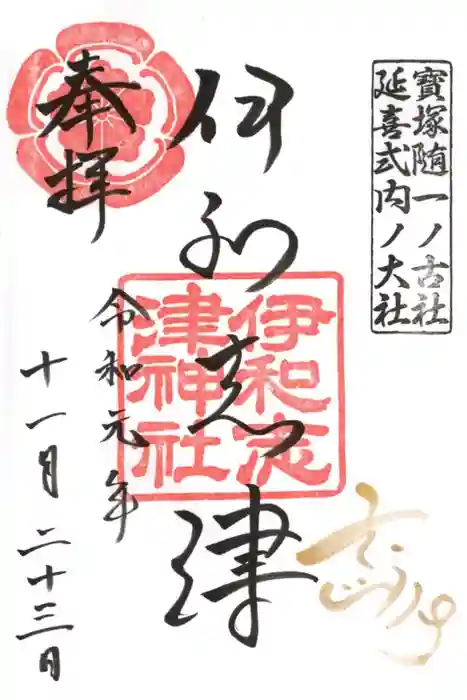 寶塚随一ノ古社
延喜式内ノ大社
奉拝
伊和志津
伊和志
津神社
令和元年
十一月二十三日